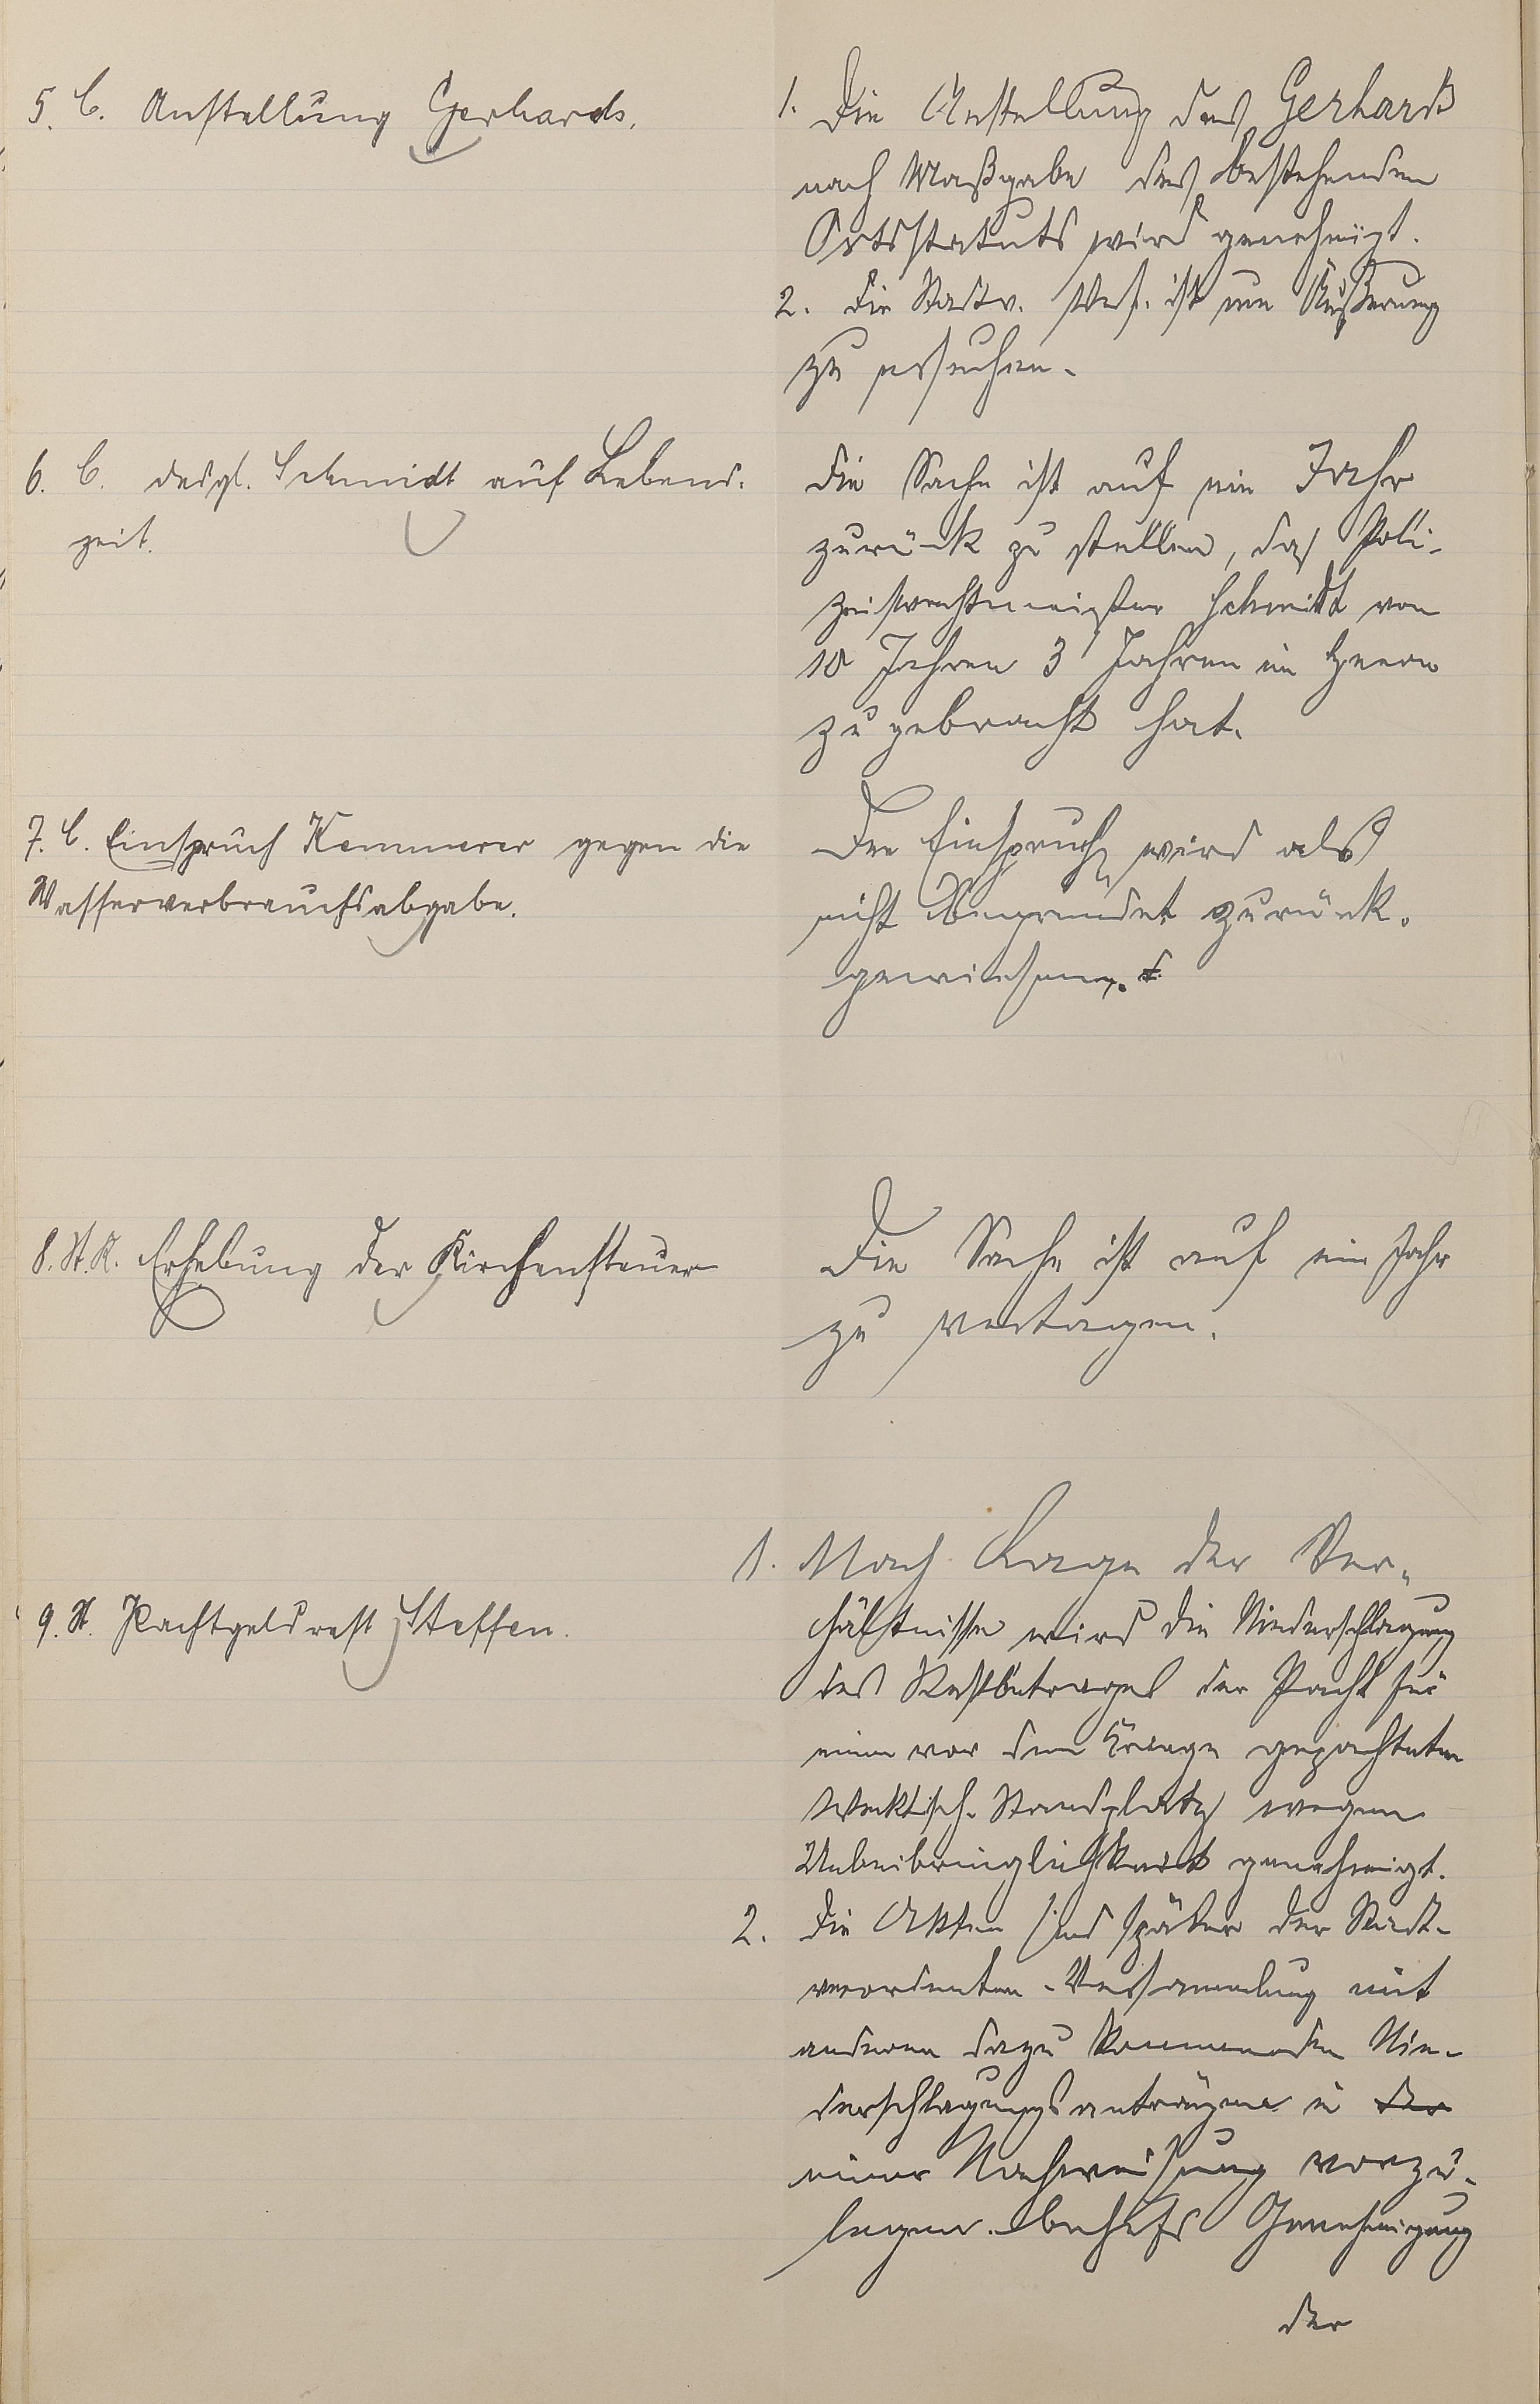 5. C. Anstellung Gerhards.
1. Die Anstellung des Gerhards
nach Maßgabe des bestehenden
Ortsstatuts wird genehmigt.
2. Die Stadtv. Vers. ist um Äußerung
zu ersuchen.
6. C. desgl. Schmidt auf Lebens-
zeit.
Die Sache ist auf ein Jahr
zurück zu stellen, da Poli-
zeiwachtmeister Schmidt von
10 Jahren 3 Jahren im Heere
zugebracht hat.
7. C. Einspruch Kemmerer gegen die
Wasserverbrauchsabgabe.
Der Einspruch wird als
nicht begründet zurück-
gewiesen.
8. St. K. Erhebung der Kirchensteuer
Die Sache ist auf ein Jahr
zu vertagen.
9. St. Pachtgeldrest Steffen.
1. Nach Lage der Ver-
hältnisse wird die Niederschlagung
des Restbetrages der Pacht für
einen vor dem Kriege gepachteten
Standplatz wegen
Unbeibringlichkeit genehmigt.
2. Die Akten sind später der Stadt-
verordneten-Versammlung mit
anderen dazu kommenden Nie-
derschlagungsanträgen in der
einer Nachweisung vorzu-
legen behufs Genehmigung
der